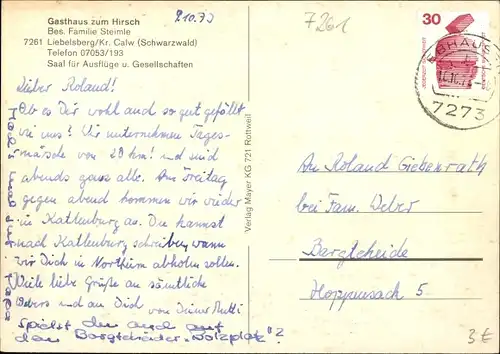 Gasthaus zum Hirsch
Bes. Familie Steimle
7261 Liebelsberg/Kr. Calw (Schwarzwald)
Telefon 07053/193
Saal für Ausflüge u. Gesellschaften
7261
Lieber Roland!
Ob es Dir wohl auch so gut gefällt
wie uns! Wir unternehmen Tages-
märsche von 28 km! und sind
abends ganz alle. Am Freitag
gegen abend kommen wir wieder
in Katlenburg an. Du kannst
nach Katlenburg schreiben, wann
wir Dich in Northeim abholen sollen.
Viele liebe Grüße an sämtliche
Webers und an Dich von Deiner Mutti
spielst du auch auf
dem Bargteheider „Bolzplatz"?
Mach's mal gut! Papa
Verlag Mayer KG 721 Rottweil
30
EBHAUSEN
7273
An Roland Giebenrath
bei Fam. Weber
Bargteheide
Hoppensack 5
3€